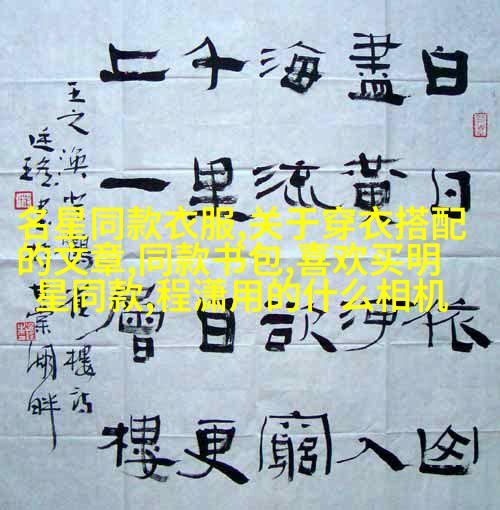 白日依山
盡黄河入
海流欲窮
千里目更
上一層樓
王之渙登鸛雀樓詩
湖畔
名星同款衣服,关于穿衣搭配
的文章,同款书包,喜欢买明
星同款,程潇用的什么相机